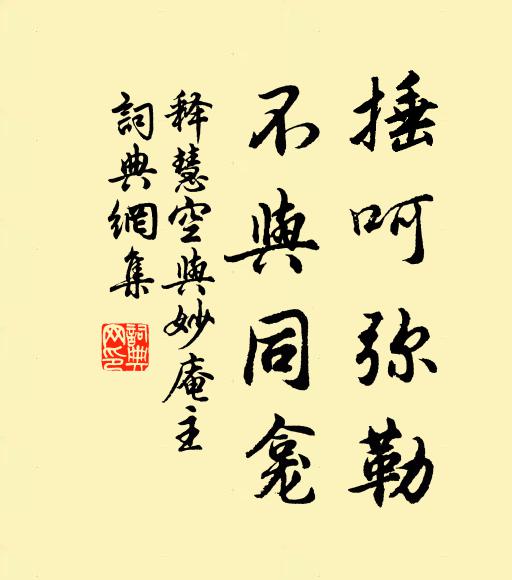 捶呵弥勒
不與同龛
释慧空與妙庵主
詞典網集
詞典网印